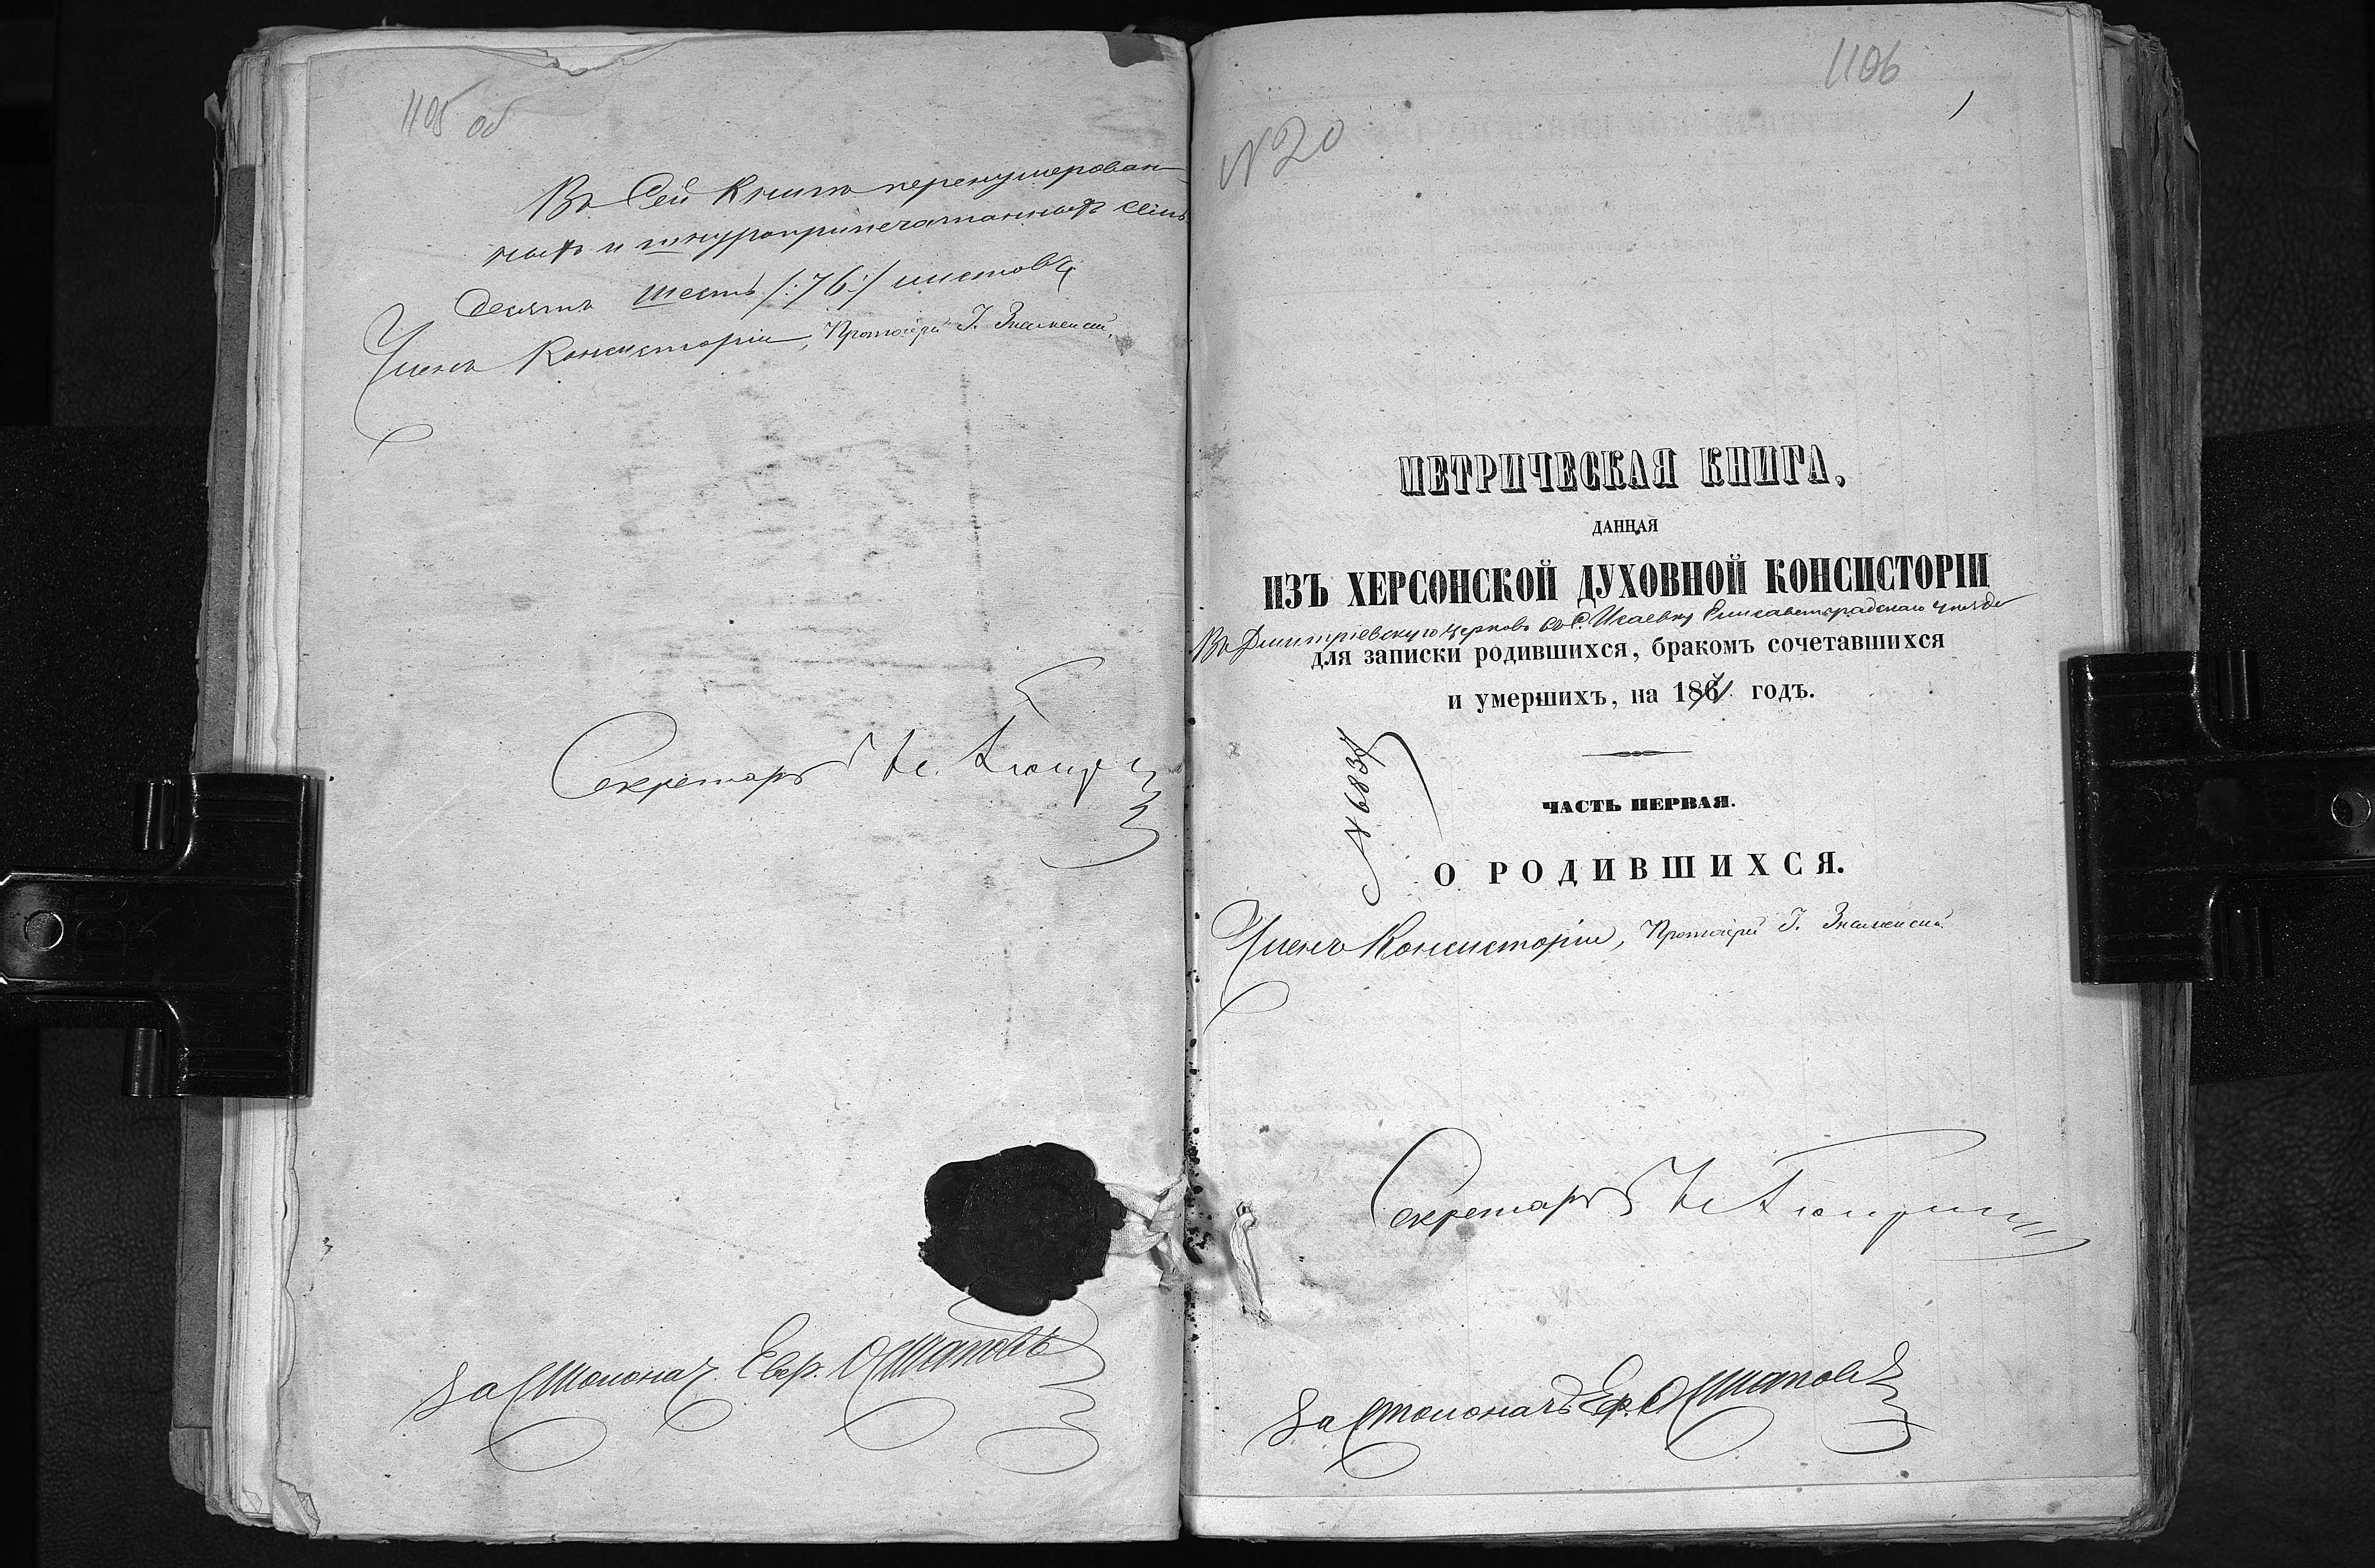 1105 об
Въ Сей Книге перенумерован-
ныхъ и шнуроприпечатанныхъ семь
десятъ шесть /:76:/ листовъ,
Членъ Консисторіи, Протоіерей І. Знаменскій.
Секретарь
За Столонач.
1106
1
№ 20
МЕТРИЧЕСКАЯ КНИГА,
ДАННАЯ
ИЗЪ ХЕРСОНСКОЙ ДУХОВНОЙ КОНСИСТОРІИ
Въ Дмитріевскую церковь въ с. Исаевку Елисаветградскаго уезда
для записки родившихся, бракомъ сочетавшихся
и умершихъ, на годъ.
ЧАСТЬ ПЕРВАЯ.
О РОДИВШИХСЯ.
Членъ Консисторіи, Протоіерей І. Знаменскій.
Секретарь
За Столоначъ